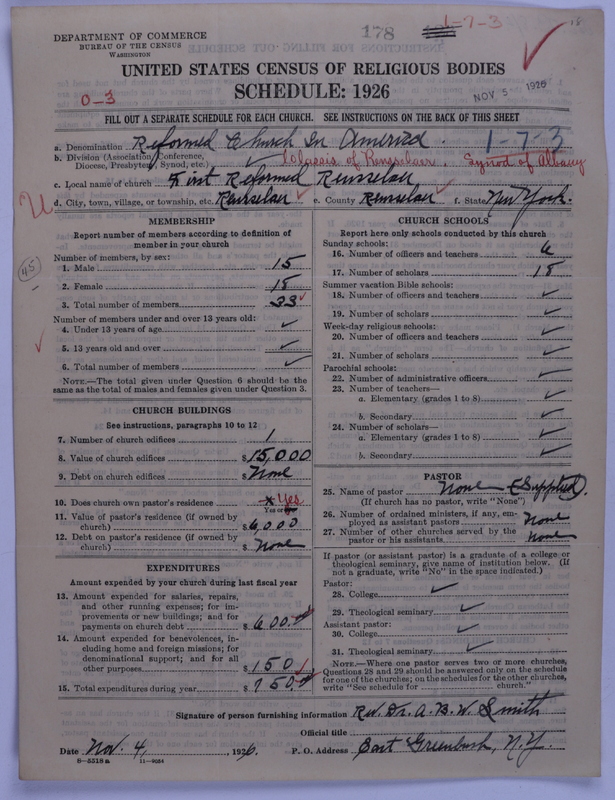 178
1-7-3
18
DEPARTMENT OF COMMERCE
BUREAU OF THE CENSUS
WASHINGTON
UNITED STATES CENSUS OF RELIGIOUS BODIES
SCHEDULE: 1926
NOV 5 1926
0-3
FILL OUT A SEPARATE SCHEDULE FOR EACH CHURCH. SEE INSTRUCTIONS ON THE BACK OF THIS SHEET
a. Denomination Reformed Church In America 1-7-3
b. Division (Association, Conference, Diocese, Presbytery, Synod, etc.) Classis of Rensselaer. Synod of Albany
c. Local name of church First Reformed Rensselaer
d. City, town, village, or township, etc. Rensselaer e. County Rensselaer f. State New York.
U
45
MEMBERSHIP
Report number of members according to definition of
member in your church
Number of members, by sex:
1. Male 15
2. Female 18
3. Total number of members 33
Number of members under and over 13 years old:
4. Under 13 years of age ✓
5. 13 years old and over ✓
6. Total number of members ✓
NOTE.—The total given under Question 6 should be the
same as the total of males and females given under Question 3.
CHURCH BUILDINGS
See instructions, paragraphs 10 to 12
7. Number of church edifices 1
8. Value of church edifices $15,000
9. Debt on church edifices $None
10. Does church own pastor's residence Yes
Yes or No
11. Value of pastor's residence (if owned by
church) $6,000
12. Debt on pastor's residence (if owned by
church) $None
EXPENDITURES
Amount expended by your church during last fiscal year
13. Amount expended for salaries, repairs,
and other running expenses; for im-
provements or new buildings; and for
payments on church debt $600
14. Amount expended for benevolences, in-
cluding home and foreign missions; for
denominational support; and for all
other purposes $150
15. Total expenditures during year $750
CHURCH SCHOOLS
Report here only schools conducted by this church
Sunday schools:
16. Number of officers and teachers 6
17. Number of scholars 18
Summer vacation Bible schools:
18. Number of officers and teachers ✓
19. Number of scholars ✓
Week-day religious schools:
20. Number of officers and teachers ✓
21. Number of scholars ✓
Parochial schools:
22. Number of administrative officers ✓
23. Number of teachers—
a. Elementary (grades 1 to 8) ✓
b. Secondary ✓
24. Number of scholars—
a. Elementary (grades 1 to 8) ✓
b. Secondary ✓
PASTOR
25. Name of pastor None (Supplied)
(If church has no pastor, write "None")
26. Number of ordained ministers, if any, em-
ployed as assistant pastors None
27. Number of other churches served by the
pastor or his assistants None
If pastor (or assistant pastor) is a graduate of a college or
theological seminary, give name of institution below. (If
not a graduate, write "No" in the space indicated.)
Pastor:
28. College ✓
29. Theological seminary ✓
Assistant pastor:
30. College ✓
31. Theological seminary ✓
NOTE.—Where one pastor serves two or more churches,
Questions 28 and 29 should be answered only on the schedule
for one of the churches; on the schedules for the other churches,
write "See schedule for church."
Signature of person furnishing information Rev. Dr. A. B. W. Smith
Official title
Date Nov. 4, 1926. P. O. Address East Greenbush, N.Y.
8-5518a 11-9054